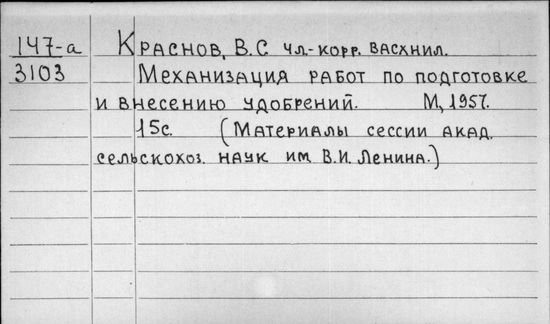 147-а Краснов, В.С чл.-корр. ВАСХНИЛ.
3103 Механизация работ по подготовке
и внесению удобрений. М, 1957.
15с. (Материалы сессии акад.
сельскохоз. наук им. В.И. Ленина.)